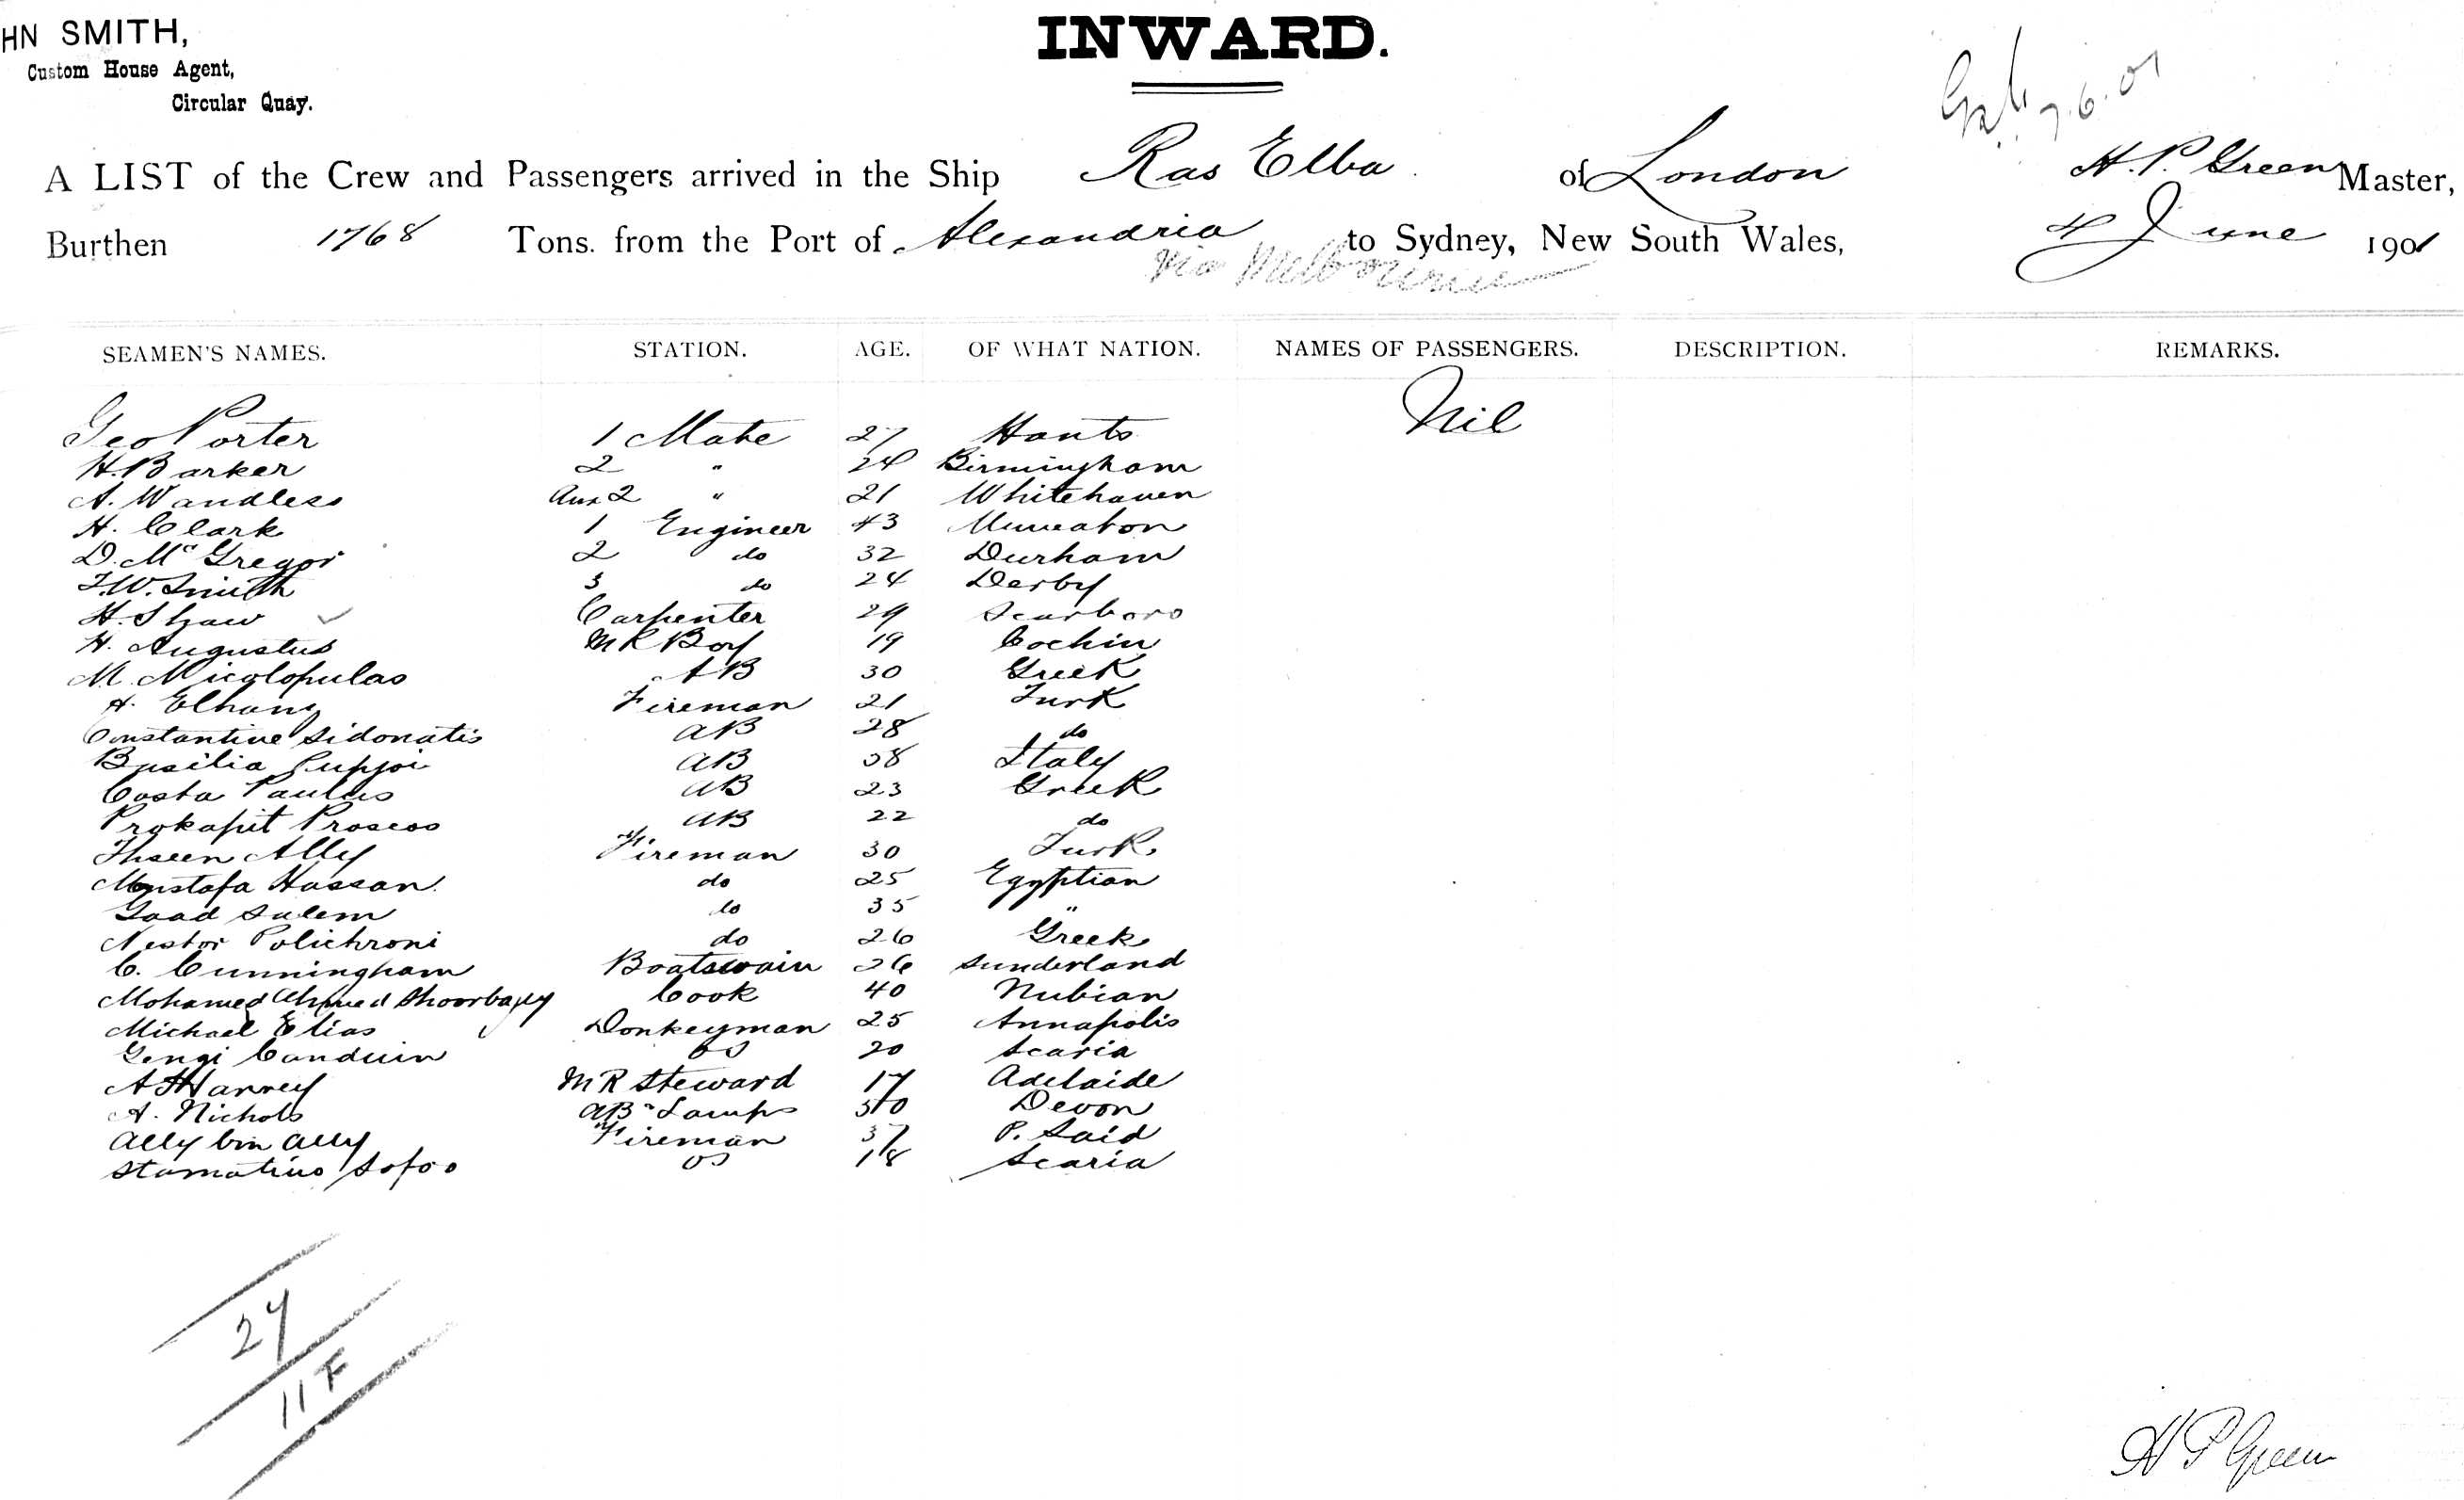 HN SMITH,
Custom House Agent,
Circular Quay.
INWARD.
7.6.01
A LIST of the Crew and Passengers arrived in the Ship Ras Elba of London H. P. Green Master,
Burthen 1768 Tons. from the Port of Alexandria to Sydney, New South Wales, 4 June 1901
via Melbourne
SEAMEN'S NAMES. STATION. AGE. OF WHAT NATION. NAMES OF PASSENGERS. DESCRIPTION. REMARKS.
Geo Porter 1 Mate 27 Hants Nil
H. Barker 2 " 24 Birmingham
A. Wandless Aux 2 " 21 Whitehaven
H. Clark 1 Engineer 43 Nuneaton
D. Mc Gregor 2 do 32 Durham
F.W. Smith 3 do 24 Derby
H. Shaw Carpenter 29 Scarboro
H. Augustus M R Boy 19 Cochin
M. Nicolopulas AB 30 Greek
A. Fireman 21 Turk
Constantine Sidonatis AB 28 do
Basilia AB 38 Italy
Costa Paulus AB 23 Greek
Prokapit Proscos AB 22 do
Ihseen Ally Fireman 30 Turk
Mustafa Hassan do 25 Egyptian
Gaad Salem do 35 "
Nestor Polichroni do 26 Greek
C. Cunningham Boatswain 26 Sunderland
Mohamed Ahmed Shoorbagy Cook 40 Nubian
Michael Elias Donkeyman 25 Annapolis
Gengi Canduin OS 20 Scaria
A Harvey M R Steward 17 Adelaide
A. Nichols AB Lamps 50 Devon
Ally bin Ally Fireman 37 P. Said
Stamatius Sofoo OS 18 Scaria
27
11 F
H P Green